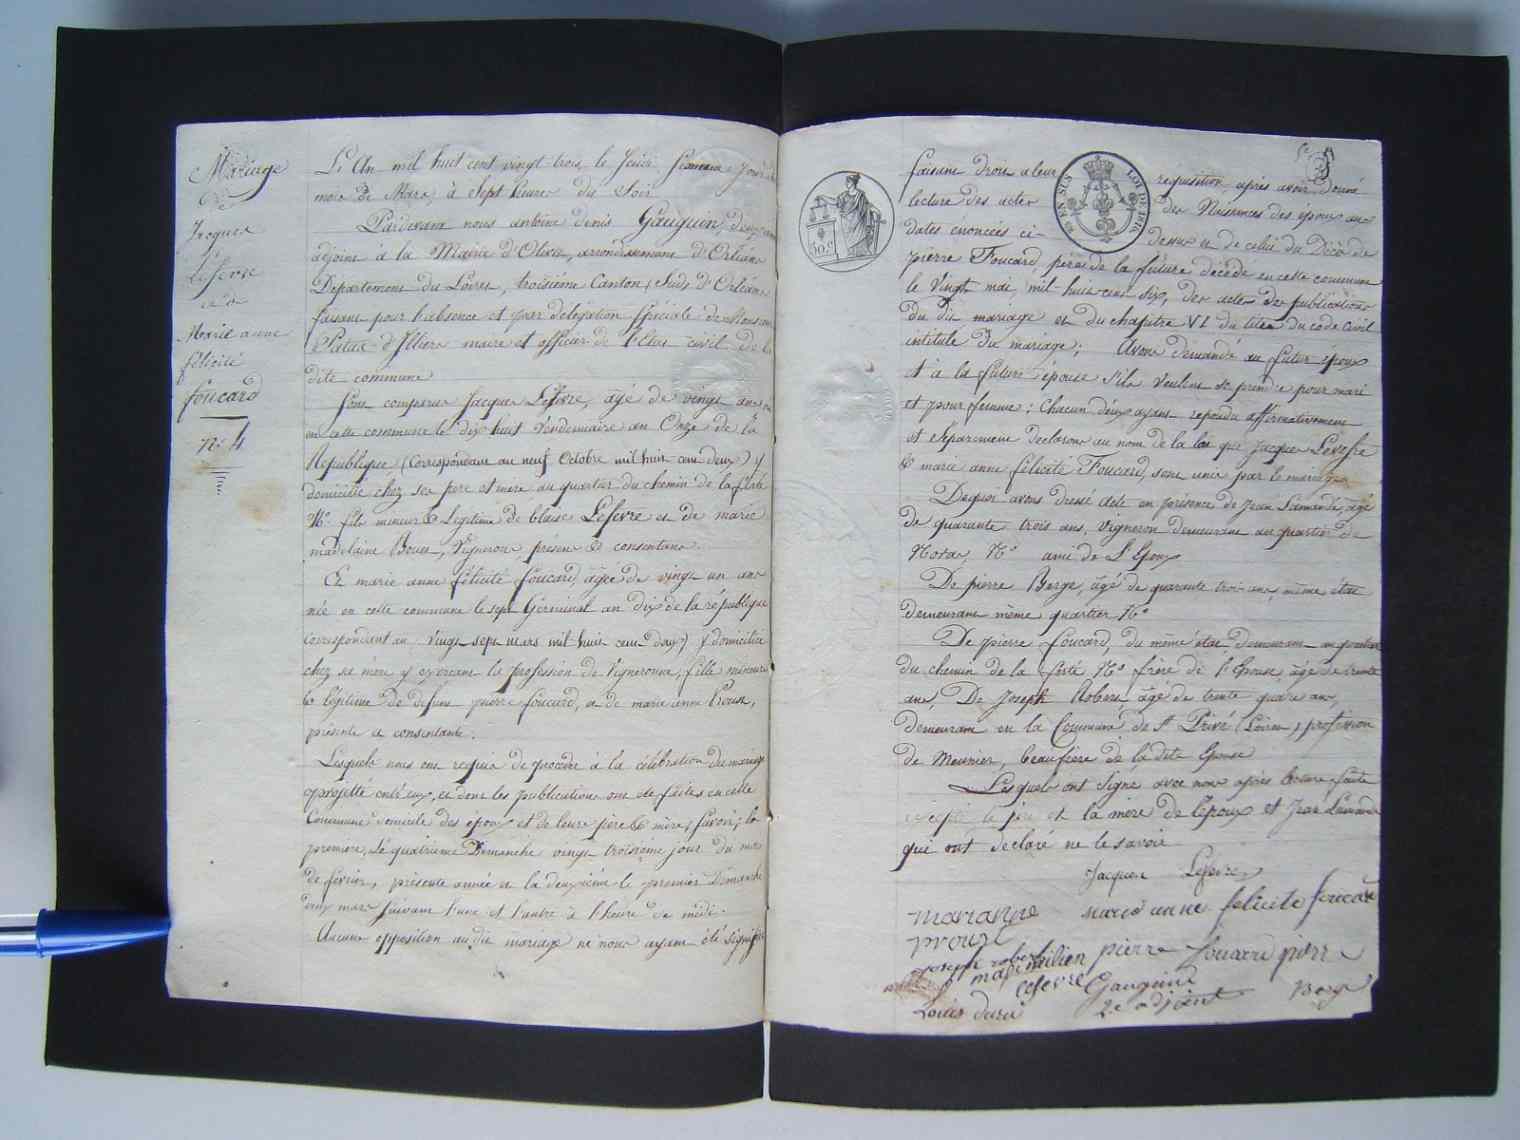 Mariage
de
Jacques
Lefevre
et de
Marie anne
félicité
foucard
n.° 4
L'An mil huit cent vingt-trois le Jeudi
mois de Mars à Sept heures du Soir
Pardevant nous antoine denis Gauguin, deuxieme
adjoint à la Mairie d'Olivet, arrondissement d'Orléans
Departement du Loiret, troisième Canton, Sud d'Orléans
faisant pour l'absence et par délégation spéciale de Monsieur
Patas d'Illiers maire et officier de l'état civil de la
dite commune
Sont comparus Jacques Lefevre, agé de vingt ans né
en cette commune le dix huit Vendemiaire an Onze de la
République (Correspondant au neuf Octobre mil huit cent deux) y
domicilié chez ses pere et mere au quartier du chemin de la ferté
N.° fils mineur & Légitime de blaise Lefevre et de marie
madelaine Boues, Vignerons présens & consentans.
Et marie anne félicité foucard, agée de vingt un ans
née en cette commune le sept Germinal an dix de la république
correspondant au vingt sept mars mil huit cent deux) y domiciliée
chez sa mère y exerçant la profession de Vigneronne, fille mineure
& légitime de defunt pierre foucard, et de marie anne Proust,
présente et consentante.
Lesquels nous ont requis de procéder à la célébration du mariage
projetté entr'eux, et dont les publications ont été faites en cette
Commune domicile des epoux et de leurs père & mère, savoir; la
premiere, le quatrième Dimanche vingt-troisième jour du mois
de février, présente année et la deuxième le premier Dimanche
deux mars suivant l'une et l'autre à l'heure de midi.
Aucune opposition au dit mariage ne nous ayant été signifiée
50 c
EN SUS
LOI DE 1816
faisant droit a leur requisition, après avoir donné
lecture des actes des Naissances des époux aux
dates énoncées ci-dessus et de celui du Décès de
pierre Foucard, père de la future décédé en cette commune
le Vingt mai, mil huit cent six, des actes de publications
du dit mariage et du chapitre VI du titre du code civil
intitulé du mariage; Avons demandé au futur époux
et à la future épouse s'ils veulent se prendre pour mari
et pour femme; Chacun d'eux ayant repondu affirmativement
et séparement declarons au nom de la loi que Jacques Lefevre
& marie anne félicité Foucard, sont unis par le mariage
Dequoi avons dressé acte en présence de Jean Lamande, agé
de quarante trois ans, vigneron demeurant au quartier de
N.° ami de l'Epoux
De pierre Berge, agé de quarante trois ans, même état
demeurant même quartier N.°
De pierre foucard, du même état, demeurant au quartier
du chemin de la ferté N.° frère de l'Epouse, agé de trente
ans, De Joseph Robert agé de trente quatre ans,
demeurant en la Commune de St Privé (Loiret) profession
de Meunier, beaufrère de la dite Epouse
Lesquels ont signé avec nous après lecture faite
excepté le père et la mère de l'époux et Jean Lamande
qui ont declaré ne le savoir
Jacques Lefevre
marianne marie anne felicite foucard
proust
joseph robert maximilien pierre foucard pierre
lefevre Gauguin Berge
Louis 2e adjoint